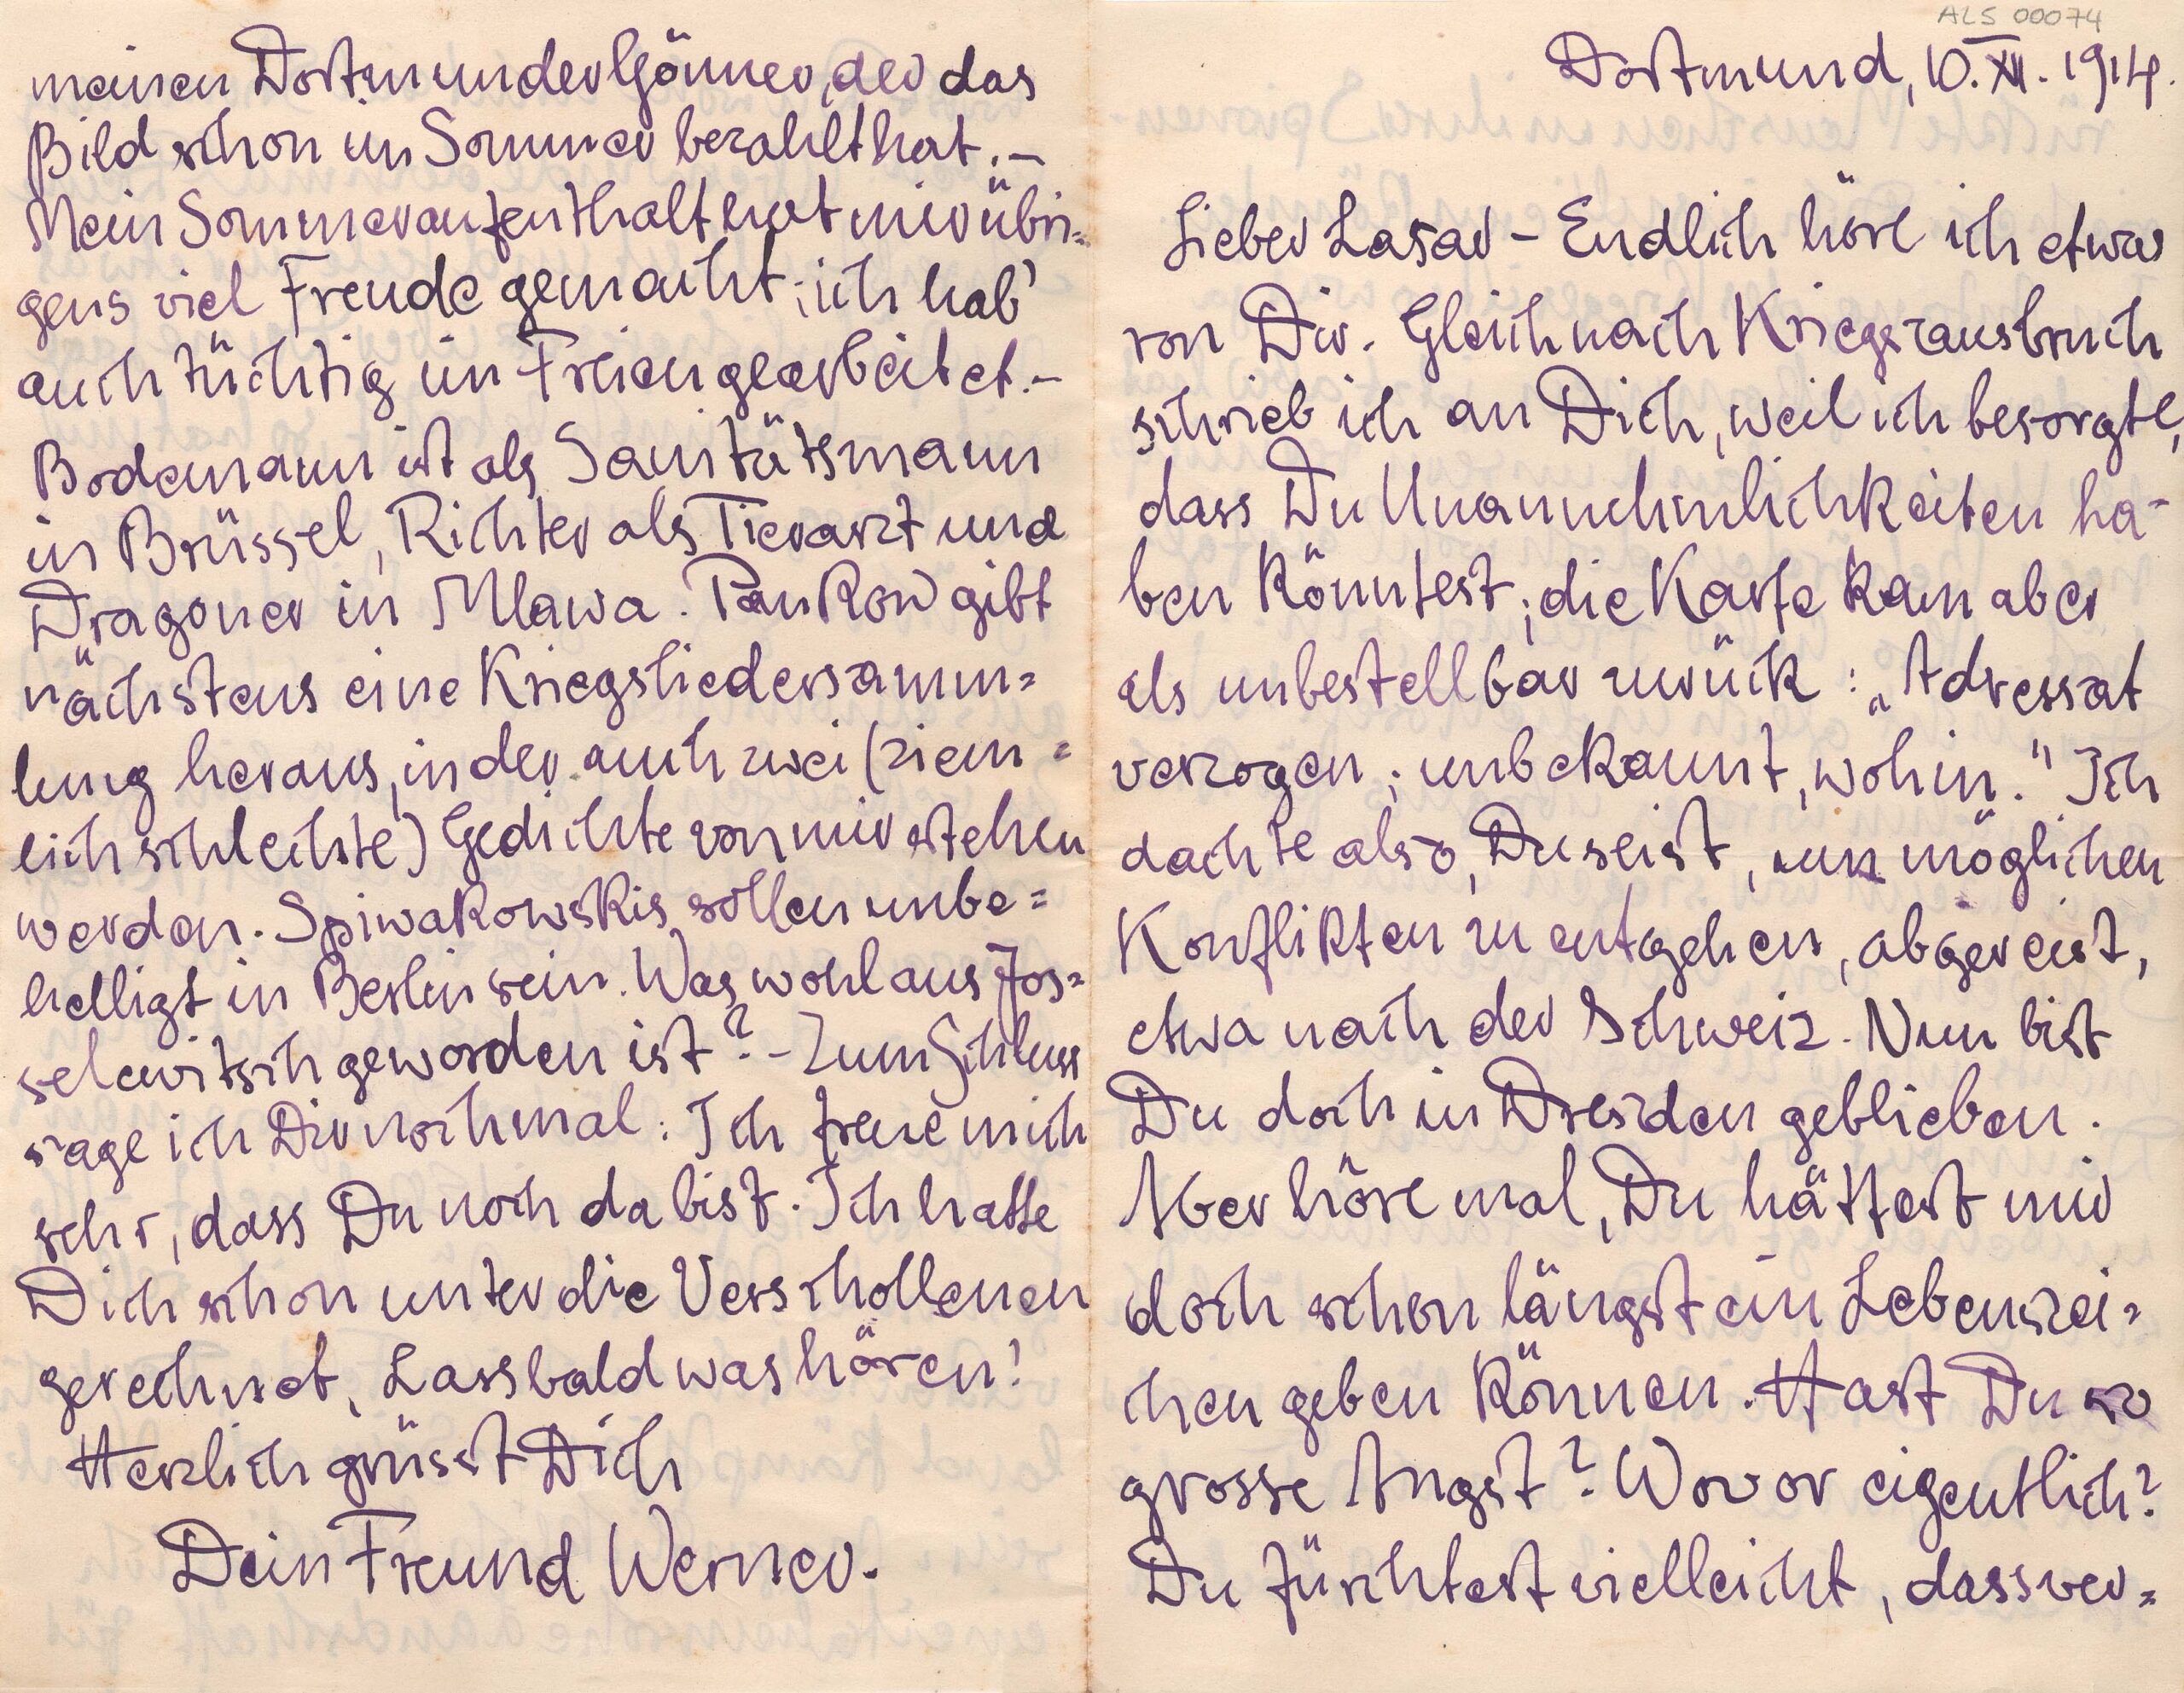 ALS 00074
Dortmund, 10. XII. 1914.
Lieber Lasar – Endlich höre ich etwas
von Dir. Gleich nach Kriegsausbruch
schrieb ich an Dich, weil ich besorgte,
dass Du Unannehmlichkeiten ha-
ben könntest; die Karte kam aber
als unbestellbar zurück: „Adressat
verzogen; unbekannt, wohin." Ich
dachte also, Du seist, um möglichen
Konflikten zu entgehen, abgereist,
etwa nach der Schweiz. Nun bist
Du doch in Dresden geblieben.
Aber höre mal, Du hättest mir
doch schon längst ein Lebenszei=
chen geben können. Hast Du so
grosse Angst? Wovor eigentlich?
Du fürchtest vielleicht, dass ver=
meinen Dortmunder Gönner, der das
Bild schon im Sommer bezahlt hat. –
Mein Sommeraufenthalt hat mir übri=
gens viel Freude gemacht; ich hab'
auch tüchtig im Freien gearbeitet. –
Bodemann ist als Sanitätsmann
in Brüssel, Richter als Tierarzt und
Dragoner in Mlawa. Pankow gibt
nächstens eine Kriegsliedersamm=
lung heraus, in der auch zwei (ziem=
lich schlechte) Gedichte von mir stehen
werden. Spiwakowskis sollen unbe=
helligt in Berlin sein. Was wohl aus Jos=
selewitsch geworden ist? – Zum Schluss
sage ich Dir nochmal: Ich freue mich
sehr, dass Du noch da bist. Ich hatte
Dich schon unter die Verschollenen
gerechnet. Lass bald was hören!
Herzlich grüsst Dich
Dein Freund Werner.